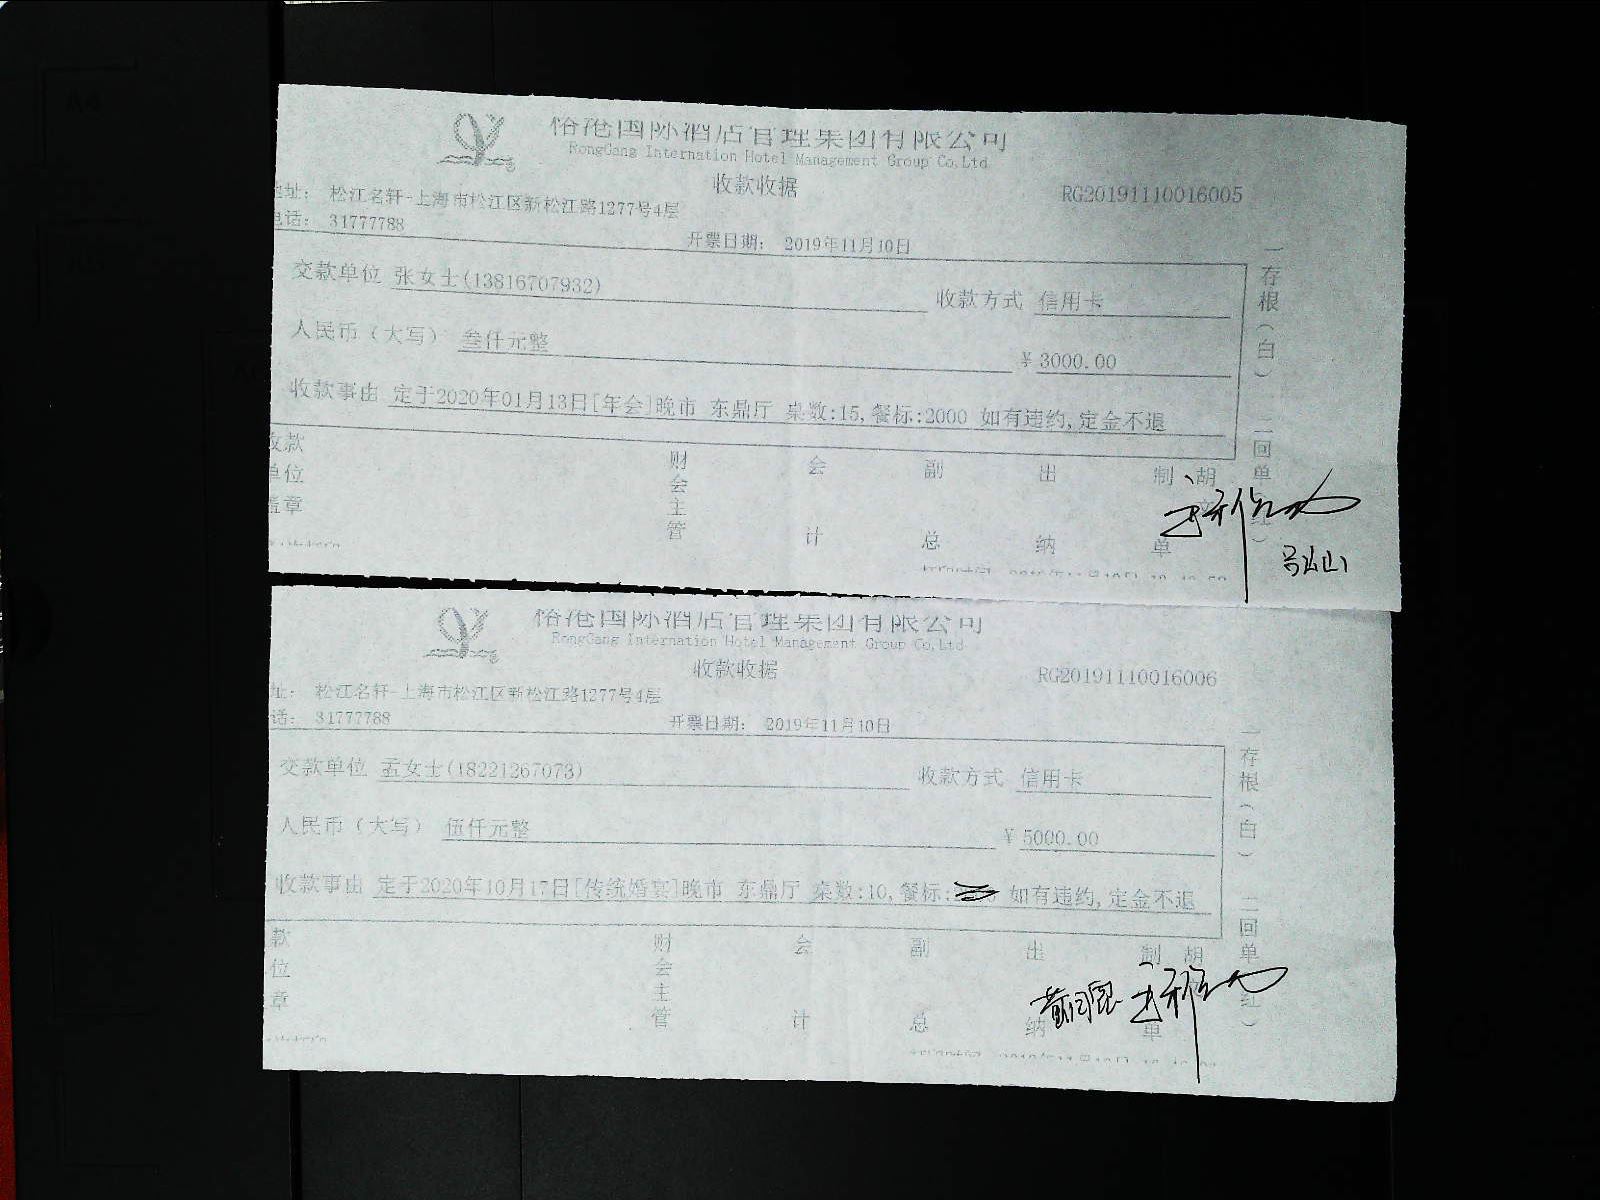 国际酒店管理集团有限公司
RongGang Internation Hotel Management Group Co,Ltd
收款收据
RG20191110016005
址： 松江名轩-上海市松江区新松江路1277号4层
话： 31777788
开票日期： 2019年11月10日
交款单位 张女士(13816707932)
收款方式 信用卡
人民币（大写） 叁仟元整
¥ 3000.00
收款事由 定于2020年01月13日[年会]晚市 东鼎厅 桌数:15,餐标:2000 如有违约,定金不退
一存根（白） 二回单（红）
收款单位盖章
财会主管 会计 副总 出纳 制单 胡
国际酒店管理集团有限公司
RongGang Internation Hotel Management Group Co,Ltd
收款收据
RG20191110016006
址： 松江名轩-上海市松江区新松江路1277号4层
话： 31777788
开票日期： 2019年11月10日
交款单位 孟女士(18221267073)
收款方式 信用卡
人民币（大写） 伍仟元整
¥ 5000.00
收款事由 定于2020年10月17日[传统婚宴]晚市 东鼎厅 桌数:10,餐标: 如有违约,定金不退
一存根（白） 二回单（红）
款位章
财会主管 会计 副总 出纳 制单 胡